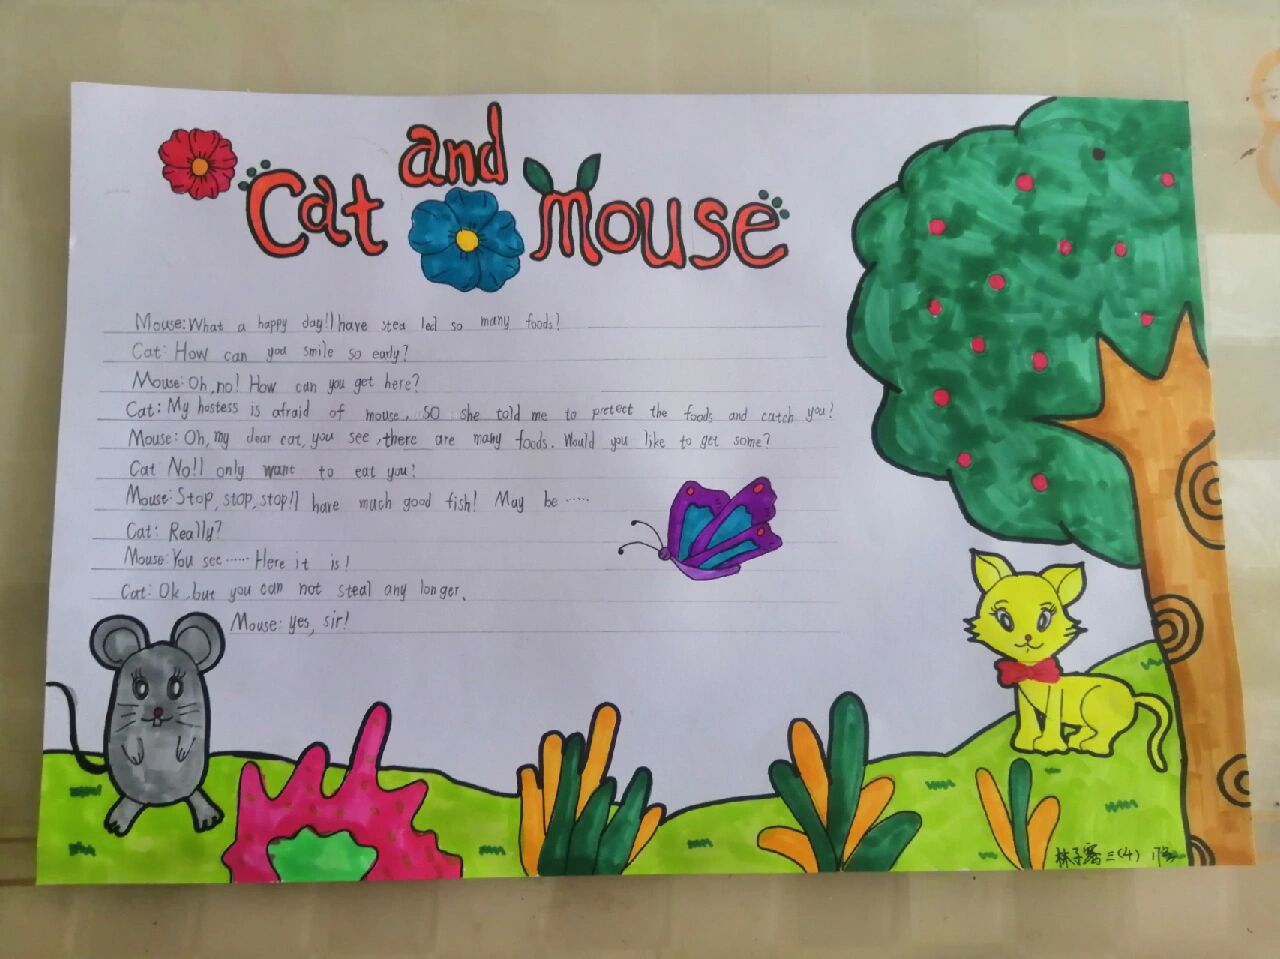 Cat and Mouse
Mouse: What a happy day! I have stea led so many foods!
Cat: How can you smile so early?
Mouse: Oh, no! How can you get here?
Cat: My hostess is afraid of mouse, so she told me to protect the foods and catch you!
Mouse: Oh, my dear cat, you see, there are many foods. Would you like to get some?
Cat No! I only want to eat you!
Mouse: Stop, stop, stop! I have much good fish! May be ……
Cat: Really?
Mouse: You see …… Here it is!
Cat: Ok, but you can not steal any longer.
Mouse: yes, sir!
林子 三(4)